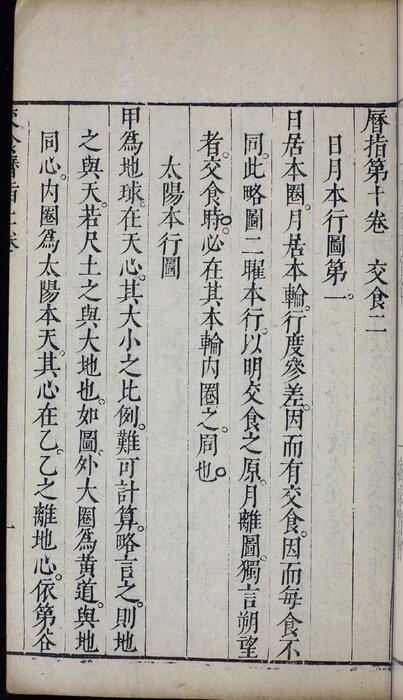 曆指第十卷 交食二
日月本行圖第一。
日居本圈。月居本輪。行度參差。因而有交食。因而每食不
同。此略圖二曜本行。以明交食之原。月離圖。獨言朔望
者。交食時。必在其本輪內圈之周也。
太陽本行圖
甲為地球。在天心。其大小之比例。難可計算。略言之。則地
之與天。若尺土之與大地也。如圖。外大圈為黃道。與地
同心。內圈為太陽本天。其心在乙。乙之離地心。依第谷
交食曆指二卷
一